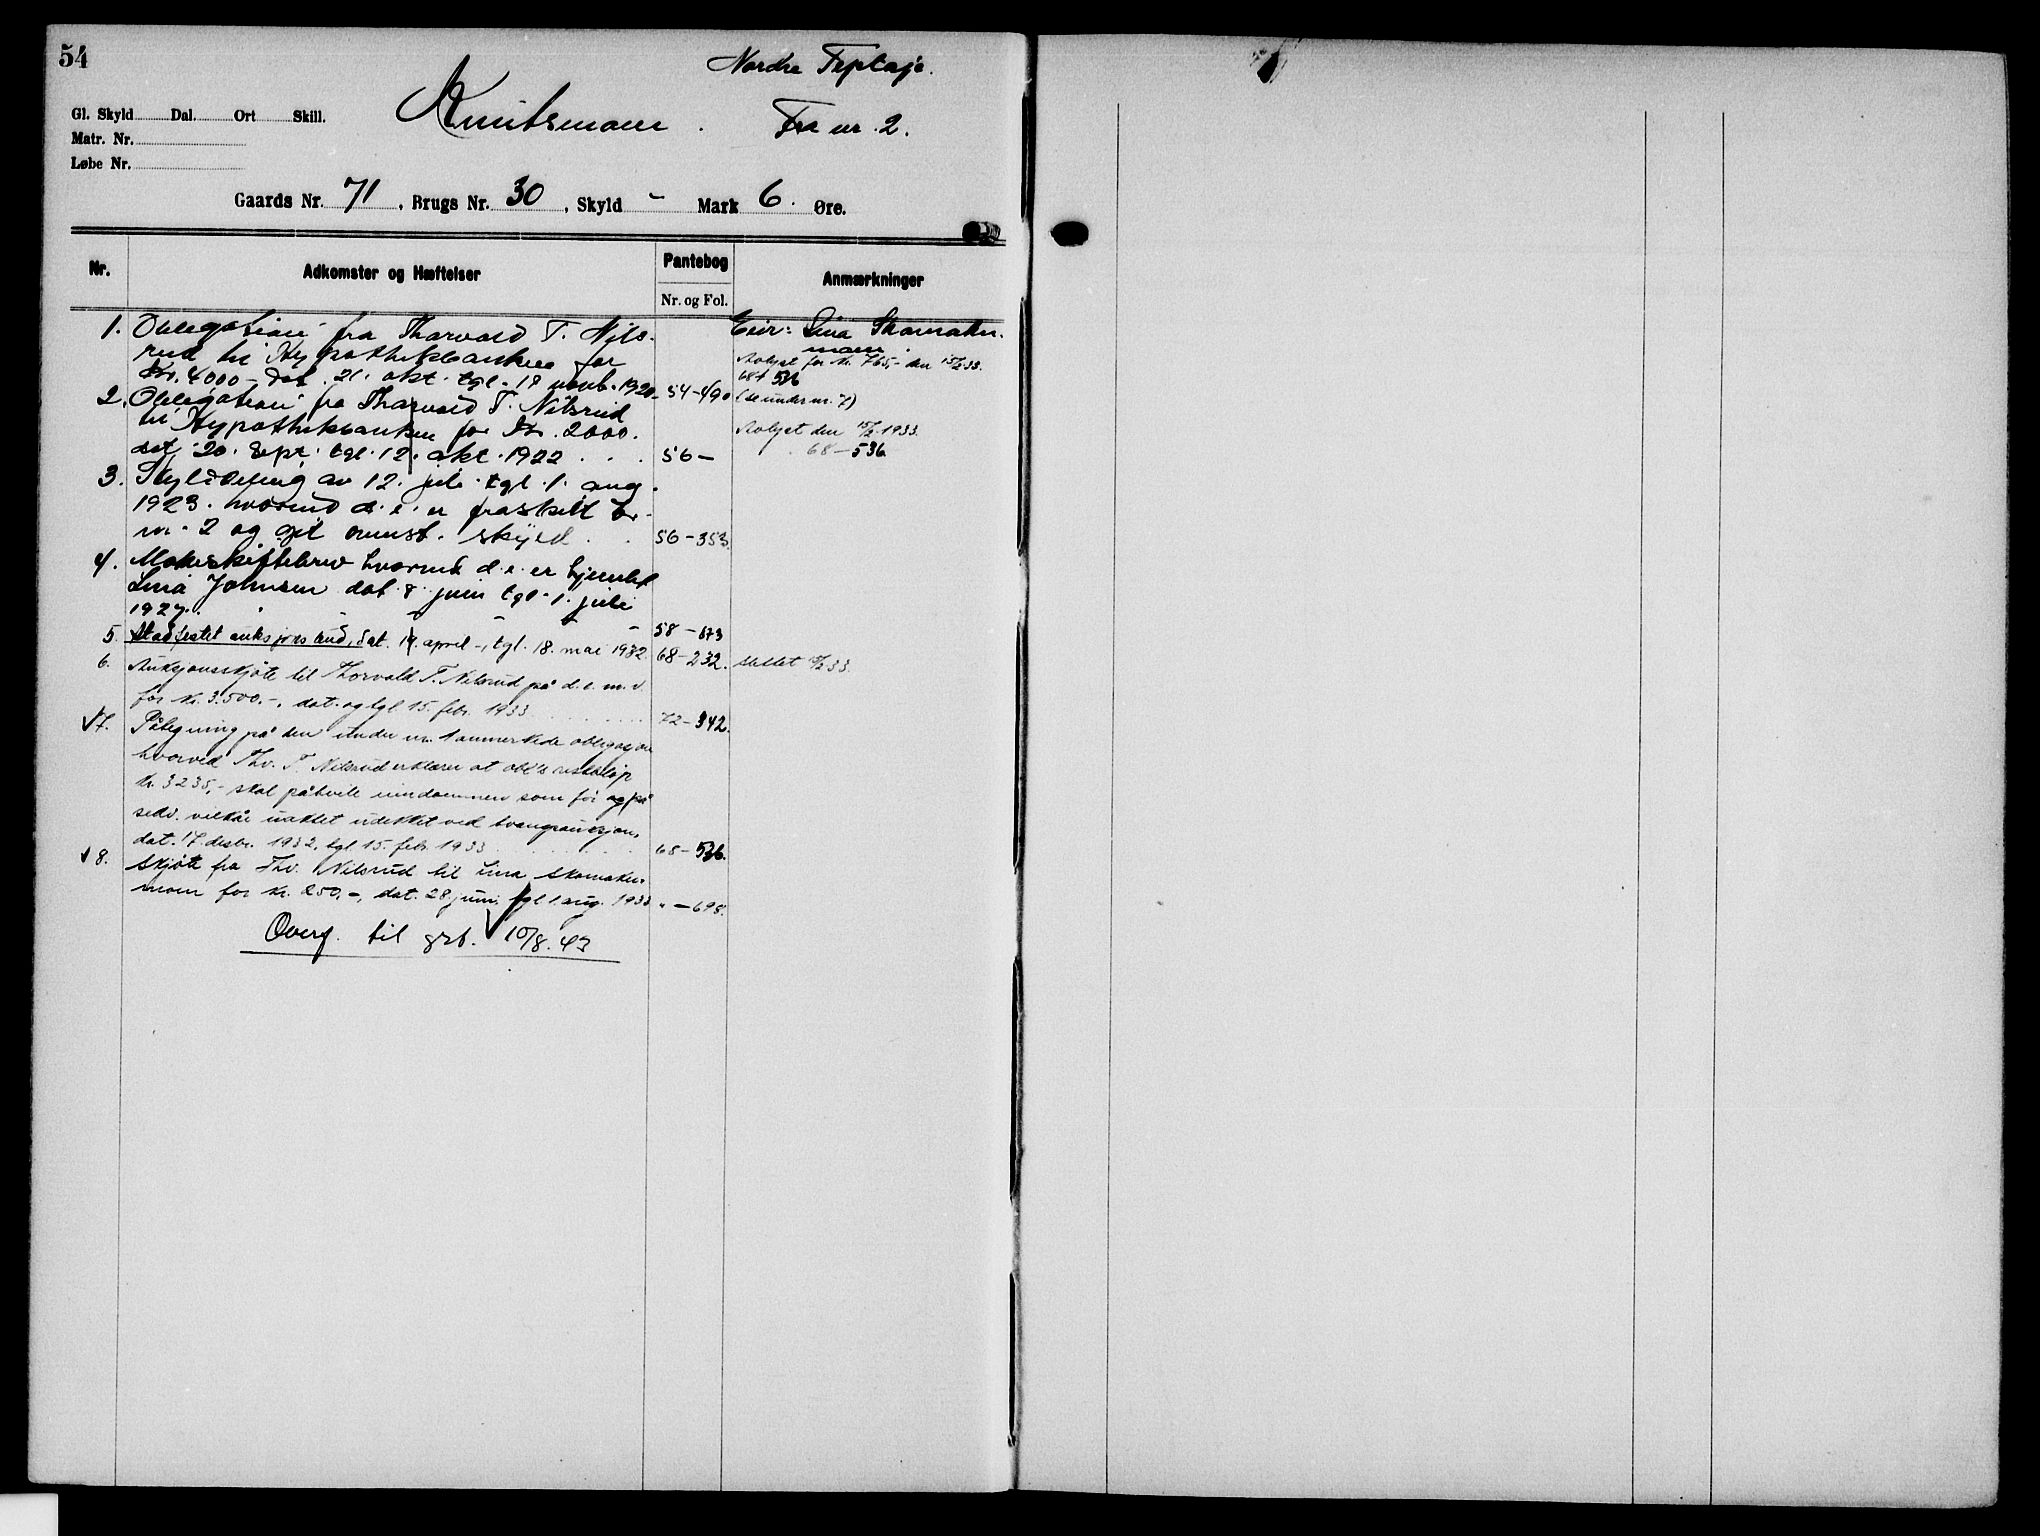 54
Nordre
Gl. Skyld Dal. Ort Skill.
Knutsmoen. Fra nr. 2.
Matr. Nr.
Løbe Nr.
Gaards Nr. 71, Brugs Nr. 30, Skyld - Mark 6. Øre.
Nr. Adkomster og Hæftelser Pantebog Anmærkninger
Nr. og Fol.
1. Obligation fra Thorvald T. Nils-
rud til Hypothekbanken for
Kr. 4000 - dat. 21. okt. tgl. 18 novb. 1920 54-490
Eier: Lina Skomaker-
moen.
Avlyst for kr. 765,- den 15/2 33.
68 + 536
(se under nr. 7)
2. Obligation fra Thorvald T. Nilsrud
til Hypothekbanken for Kr. 2000.
dat. 20. Sept. tgl. 12. okt. 1922 . . . 56-
Avlyst den 15/2 1933.
68-536
3. Skylddeling av 12. juli tgl. 1. aug.
1923. hvorved d. e. er fraskilt br.
nr. 2 og git ovenst. skyld . . 56-353.
4. Makeskiftebrev hvorved d. e. er hjemlet
Lina Johnsen dat. 8 juni tgl. 1. juli
1927. 58-673
5. Stadfestet auksjonsbud, dat. 19. april -, tgl. 18. mai 1932. 68-232. slettet 15/2 33.
6. Auksjonsskjøte til Thorvald T. Nilsrud på d. e. m. v.
for kr. 3.500.-, dat. og tgl. 15. febr. 1933. . . . . . . . 72-342.
7. Påtegning på den under nr. 1 anmerkede obligasjon
hvorved Thv. T. Nilsrud erklærer at obl's restbeløp
kr. 3235,- skal påhvile eiendommen som før og på
sedv. vilkår uaktet udekket ved tvangsauksjon,
dat. 17. desbr. 1932, tgl. 15. febr. 1933 . . . . . 68-536.
8. Skjøte fra Thv. Nilsrud til Lina Skomaker-
moen for kr. 250,-, dat. 28. juni, tgl. 1. aug. 1933 " - 698.
Overf. til grb. 10/8. 43